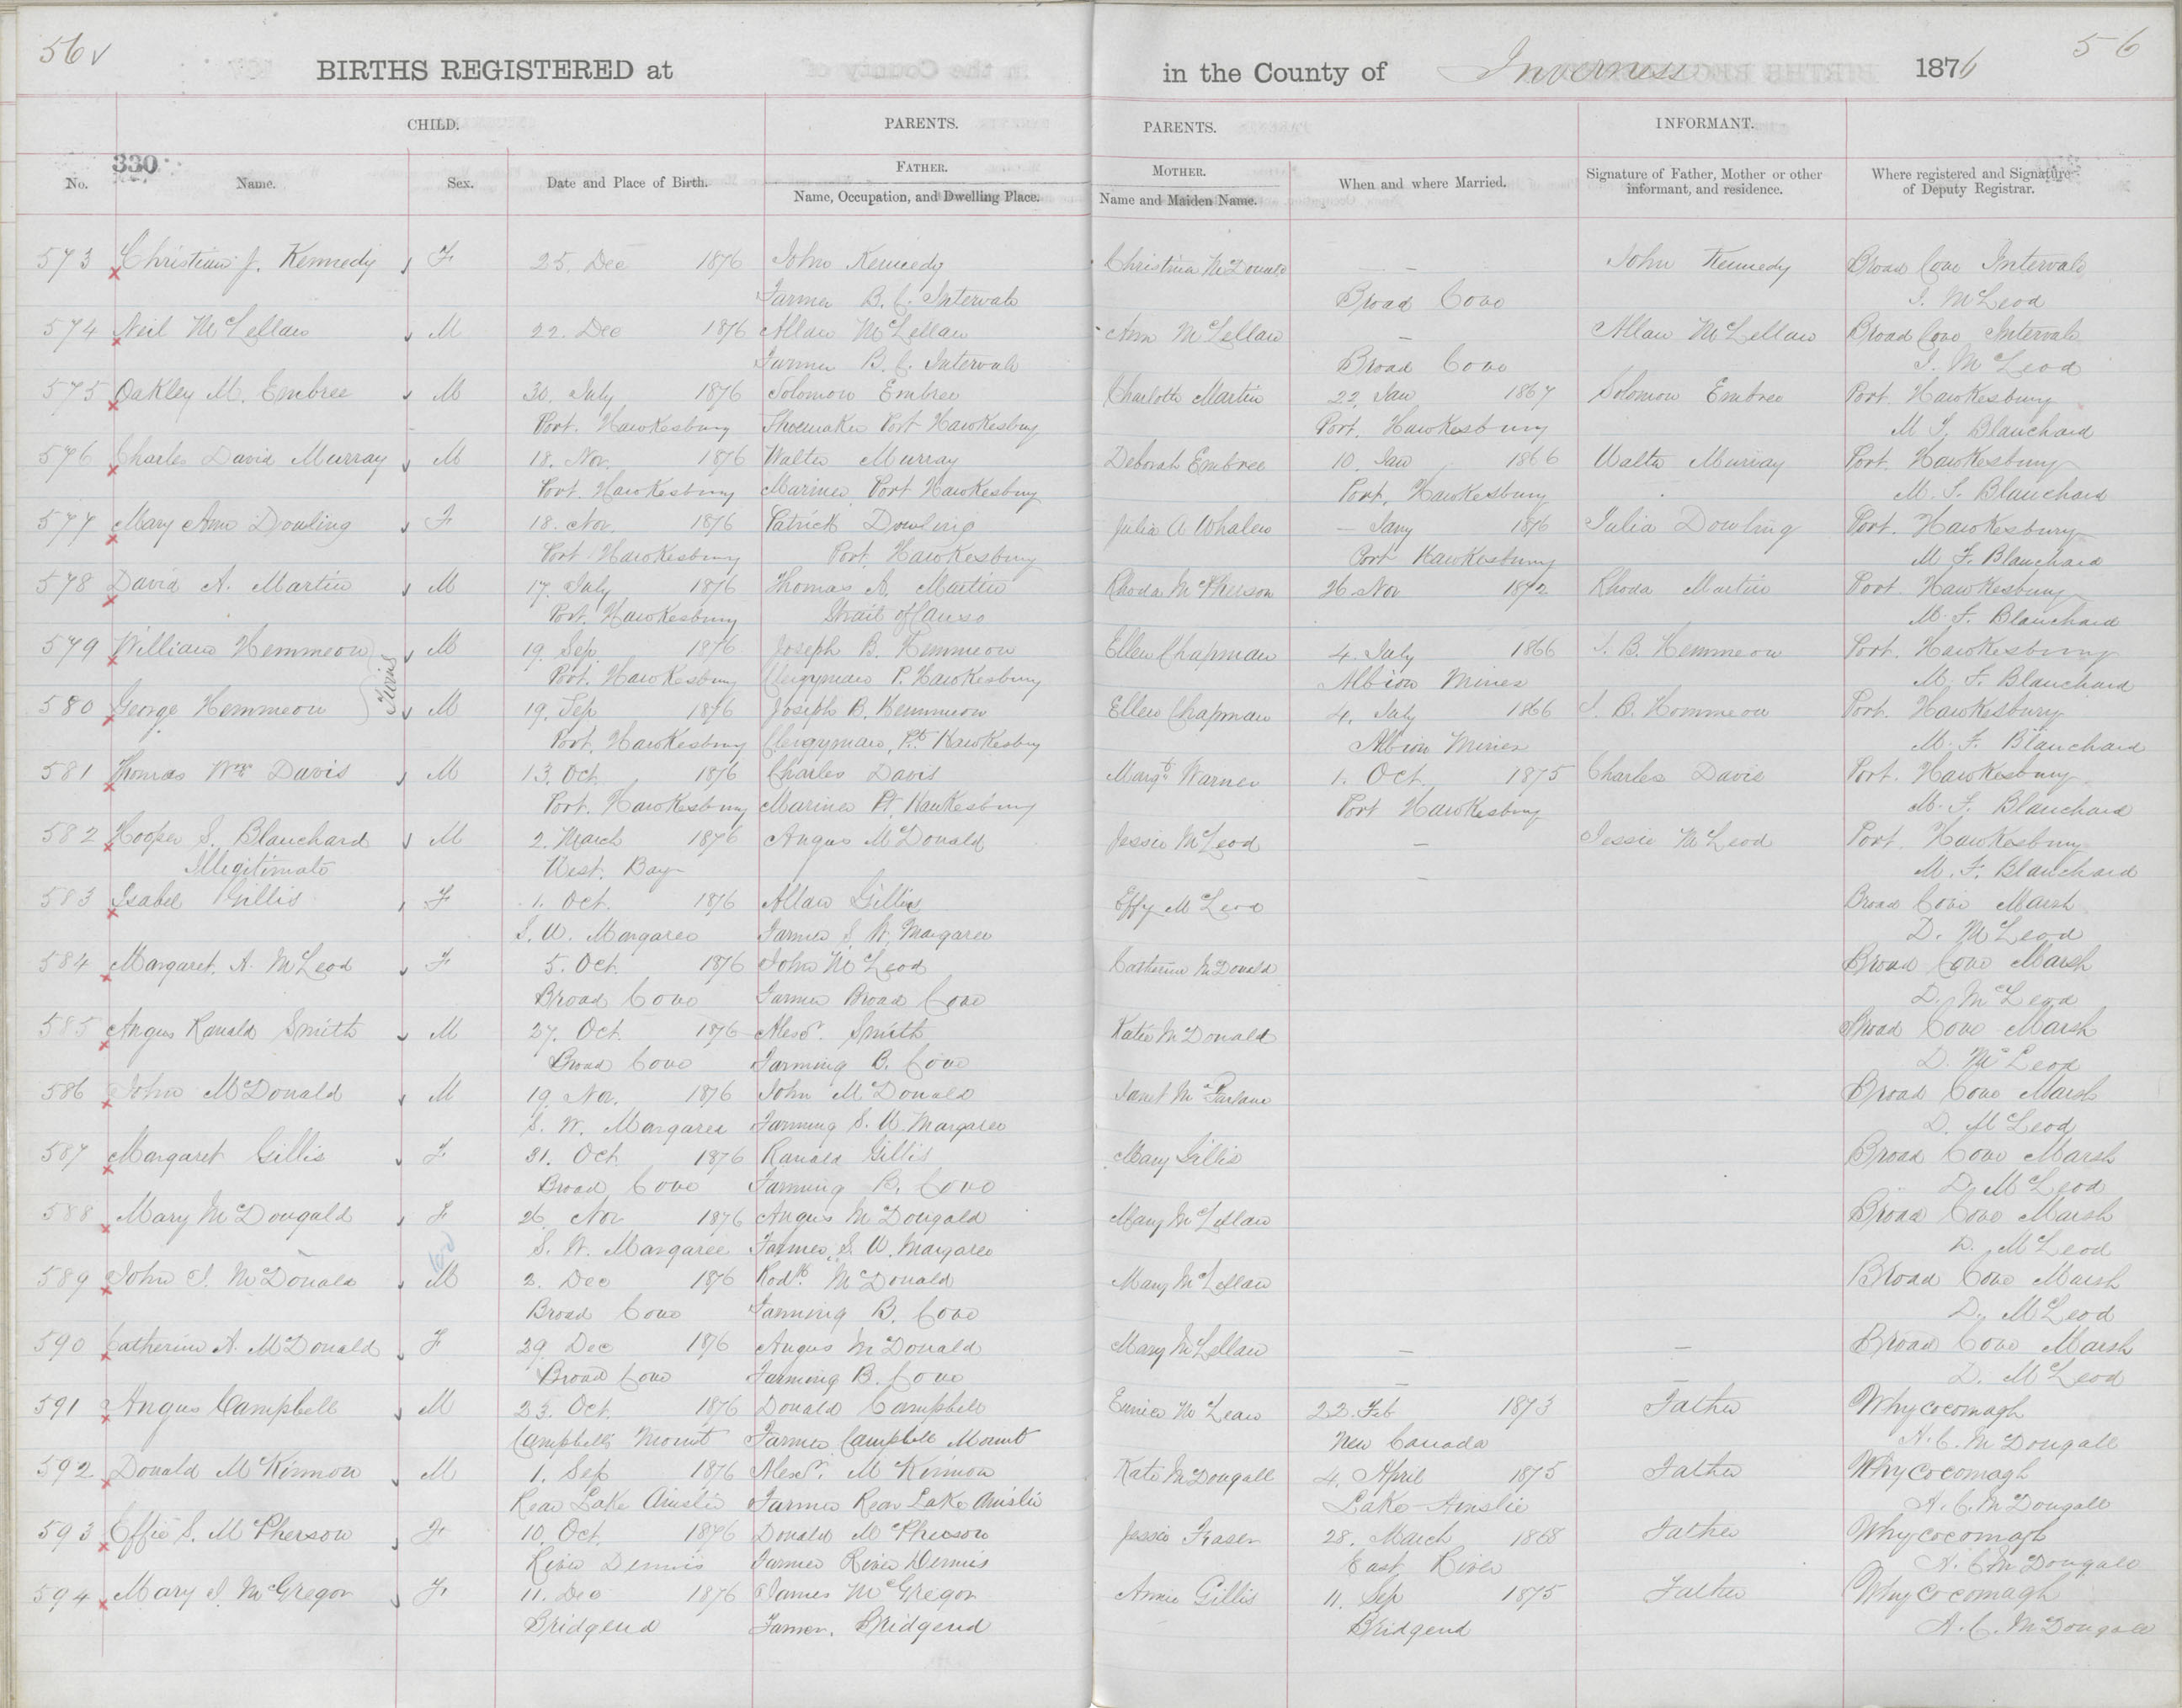 56 v
56
BIRTHS REGISTERED at
in the County of Inverness 1876
CHILD.
PARENTS.
PARENTS.
INFORMANT.
330
No.
Name.
Sex.
Date and Place of Birth.
FATHER.
Name, Occupation, and Dwelling Place.
MOTHER.
Name and Maiden Name.
When and where Married.
Signature of Father, Mother or other informant, and residence.
Where registered and Signature of Deputy Registrar.
573 Christian J. Kennedy F 25. Dec 1876 John Kennedy Christina McDonald – John Kennedy Broad Cove Intervale
Farmer B. C. Intervale Broad Cove J. McLeod
574 Neil McLellan M 22. Dec 1876 Allan McLellan Ann McLellan – Allan McLellan Broad Cove Intervale
Farmer B. C. Intervale Broad Cove J. McLeod
575 Oakley M. Embree M 30. July 1876 Solomon Embree Charlotte Martin 22. Jan 1867 Solomon Embree Port. Hawkesbury
Port. Hawkesbury Shoemaker Port Hawkesbury Port. Hawkesbury M F. Blanchard
576 Charles David Murray M 18. Nov. 1876 Walter Murray Deborah Embree 10. Jan 1866 Walter Murray Port. Hawkesbury
Port. Hawkesbury Mariner Port Hawkesbury Port. Hawkesbury M. F. Blanchard
577 Mary Ann Dowling F 18. Nov. 1876 Patrick Dowling Julia A Whalen – Jany 1876 Julia Dowling Port. Hawkesbury
Port Hawkesbury Port. Hawkesbury Port Hawkesbury M F. Blanchard
578 David A. Martin M 17. July 1876 Thomas A. Martin Rhoda McPherson 26 Nov 1872 Rhoda Martin Port. Hawkesbury
Port. Hawkesbury Strait of Canso M. F. Blanchard
579 William Hemmeon M 19. Sep 1876 Joseph B. Hemmeon Ellen Chapman 4. July 1866 J. B. Hemmeon Port. Hawkesbury
Twins
Port. Hawkesbury Clergyman P. Hawkesbury Albion Mines M. F. Blanchard
580 George Hemmeon M 19. Sep 1876 Joseph B. Hemmeon Ellen Chapman 4. July 1866 J. B. Hemmeon Port. Hawkesbury
Port. Hawkesbury Clergyman, Pt. Hawkesbury Albion Mines M. F. Blanchard
581 Thomas Wm Davis M 13. Oct. 1876 Charles Davis Margt. Warner 1. Oct. 1875 Charles Davis Port. Hawkesbury
Port. Hawkesbury Mariner Pt. Hawkesbury Port Hawkesbury M. F. Blanchard
582 Hooper S. Blanchard M 2. March 1876 Angus McDonald Jessie McLeod – Jessie McLeod Port. Hawkesbury
Illegitimate West. Bay – M. F. Blanchard
583 Isabel Gillis F 1. Oct. 1876 Allan Gillis Effy McLeod Broad Cove Marsh
S. W. Margaree Farmer S. W. Margaree D. McLeod
584 Margaret. A. McLeod F 5. Oct. 1876 John McLeod Catherine McDonald Broad Cove Marsh
Broad Cove Farmer Broad Cove D. McLeod
585 Angus Ranald Smith M 27. Oct. 1876 Alexr. Smith Katie McDonald Broad Cove Marsh
Broad Cove Farming B. Cove D. McLeod
586 John McDonald M 19. Nov. 1876 John McDonald Janet McFarlane Broad Cove Marsh
S. W. Margaree Farming S. W. Margaree D. McLeod
587 Margaret Gillis F 31. Oct. 1876 Ranald Gillis Mary Gillis Broad Cove Marsh
Broad Cove Farming B. Cove D. McLeod
588 Mary McDougald F 26. Nov 1876 Angus McDougald Mary McLellan Broad Cove Marsh
S. W. Margaree Farmer S. W. Margaree D. McLeod
589 John J. McDonald M 2. Dec 1876 Rodk. McDonald Mary McLellan Broad Cove Marsh
Broad Cove Farming B. Cove D. McLeod
590 Catherine A. McDonald F 29. Dec 1876 Angus McDonald Mary McLellan – – Broad Cove Marsh
Broad Cove Farming B. Cove – – D. McLeod
591 Angus Campbell M 23. Oct. 1876 Donald Campbell Eunice McLean 22. Feb 1873 Father Whycocomagh
Campbells Mount Farmer Campbell Mount New Canada A. C. McDougall
592 Donald McKinnon M 1. Sep 1876 Alexr. McKinnon Kate McDougall 4. April 1875 Father Whycocomagh
Rear Lake Ainslie Farmer Rear Lake Ainslie Lake Ainslie A. C. McDougall
593 Effie S. McPherson F 10. Oct. 1876 Donald McPherson Jessie Fraser 28. March 1868 Father Whycocomagh
River Dennis Farmer River Dennis East River A. C. McDougall
594 Mary J. McGregor F 11. Dec 1876 James McGregor Annie Gillis 11. Sep 1875 Father Whycocomagh
Bridgend Farmer. Bridgend Bridgend A. C. McDougall